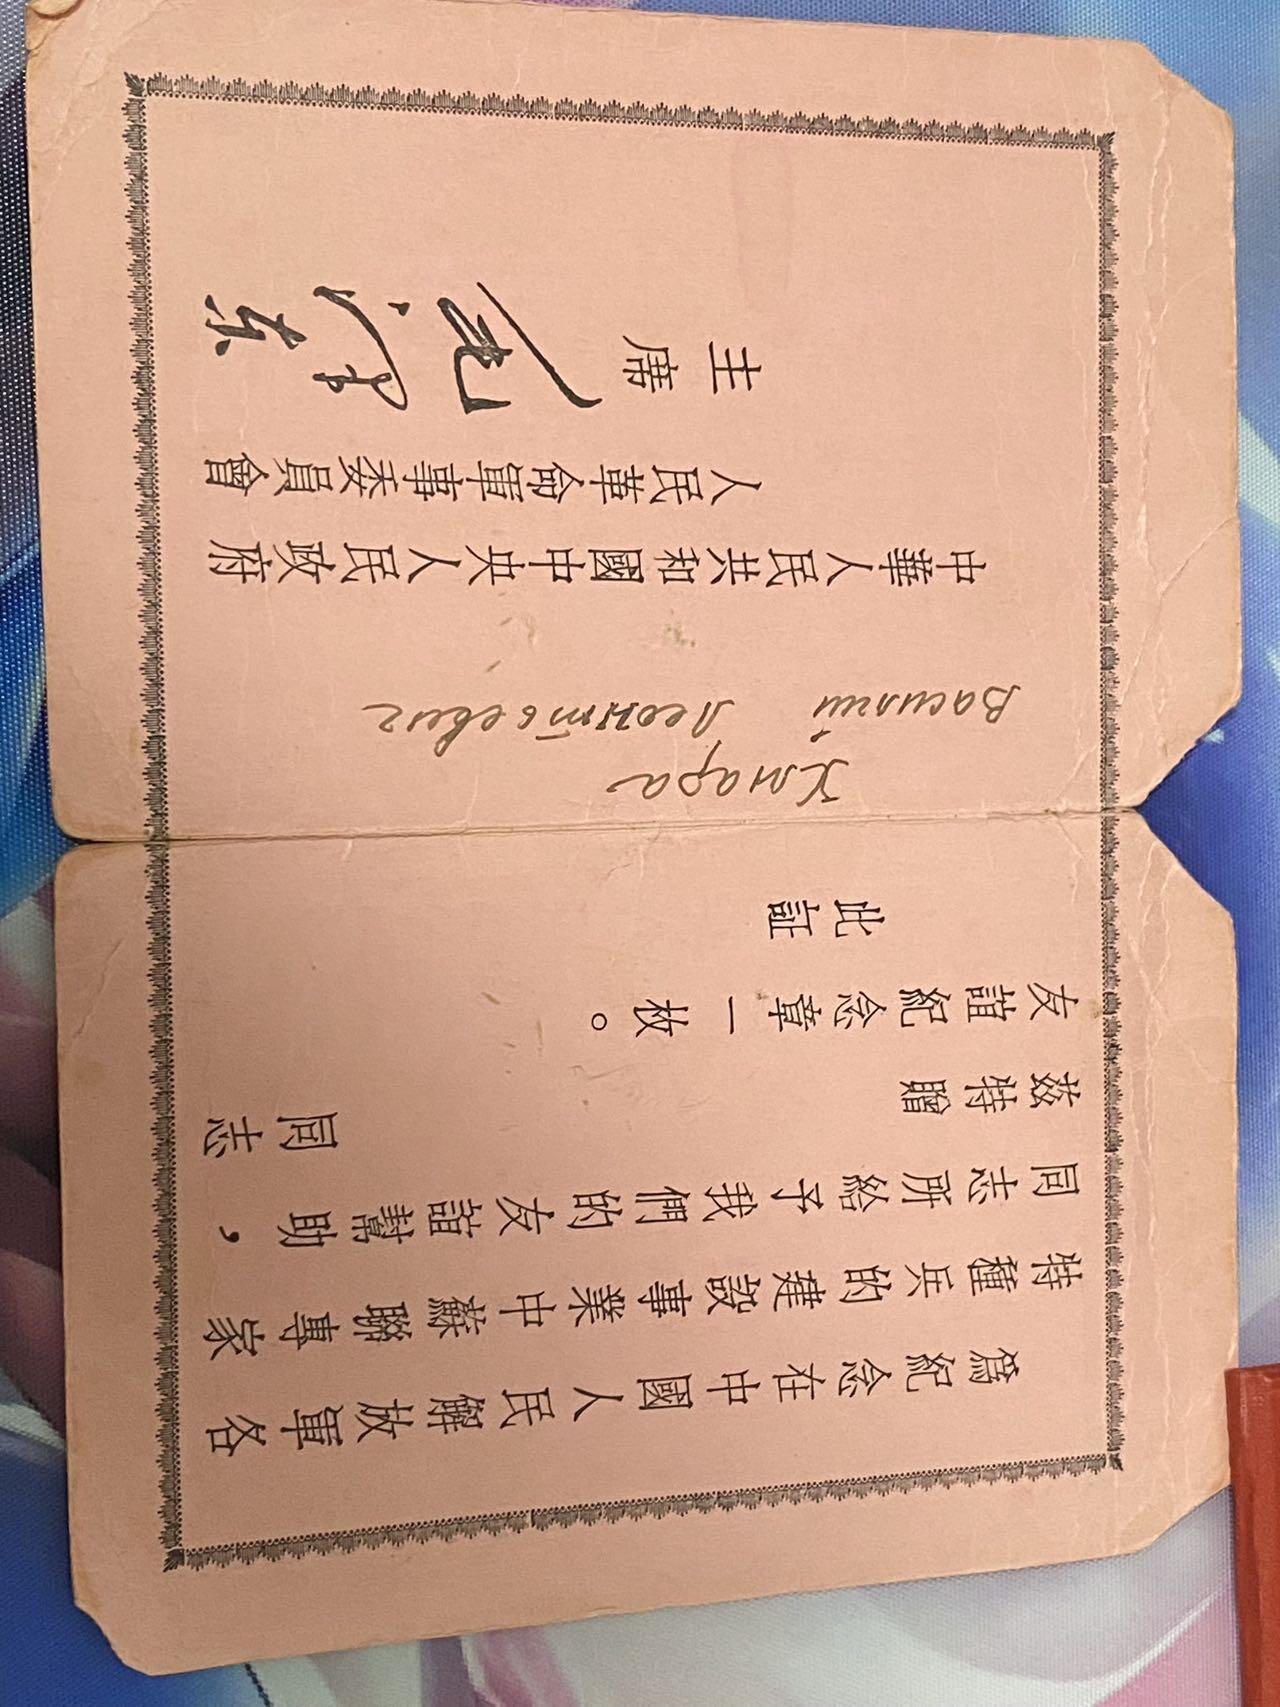 爲紀念在中國人民解放軍各
特種兵的建設事業中蘇聯專家
同志所給予我們的友誼幫助，
茲特贈 同志
友誼紀念章一枚。
此証
Хмара
Василий Леонтьевич
中華人民共和國中央人民政府
人民革命軍事委員會
主席 毛泽东